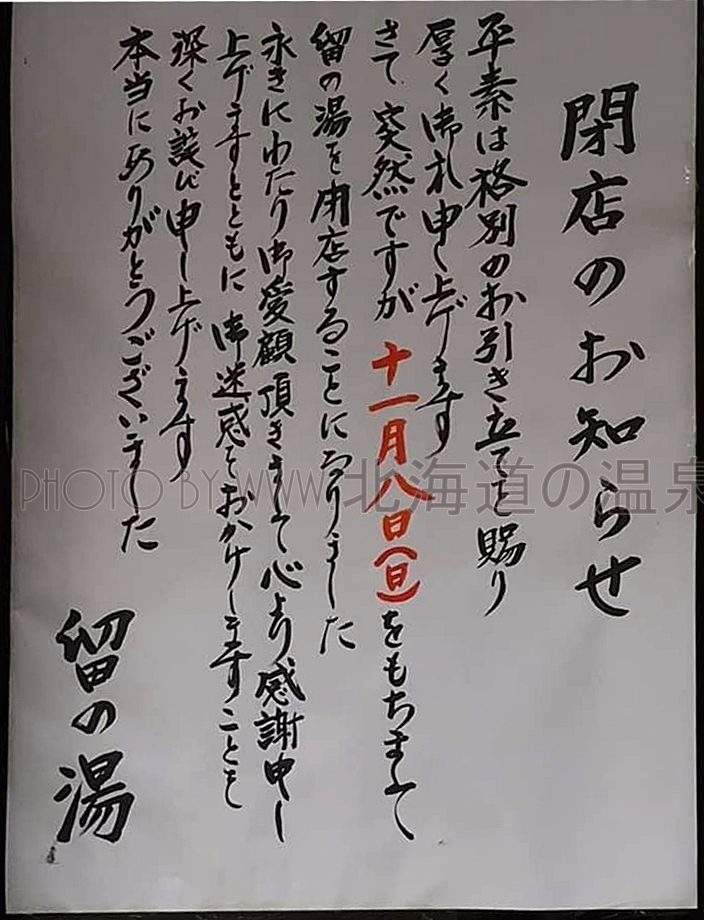 閉店のお知らせ
平素は格別のお引き立てを賜り
厚く御礼申し上げます
さて 突然ですが 十一月八日(日)をもちまして
留の湯を閉店することになりました
永きにわたり御愛顧頂きまして 心より感謝申し
上げますとともに 御迷惑をおかけしますことを
深くお詫び申し上げます
本当にありがとうございました
留の湯
PHOTO BY WWW.北海道の温泉